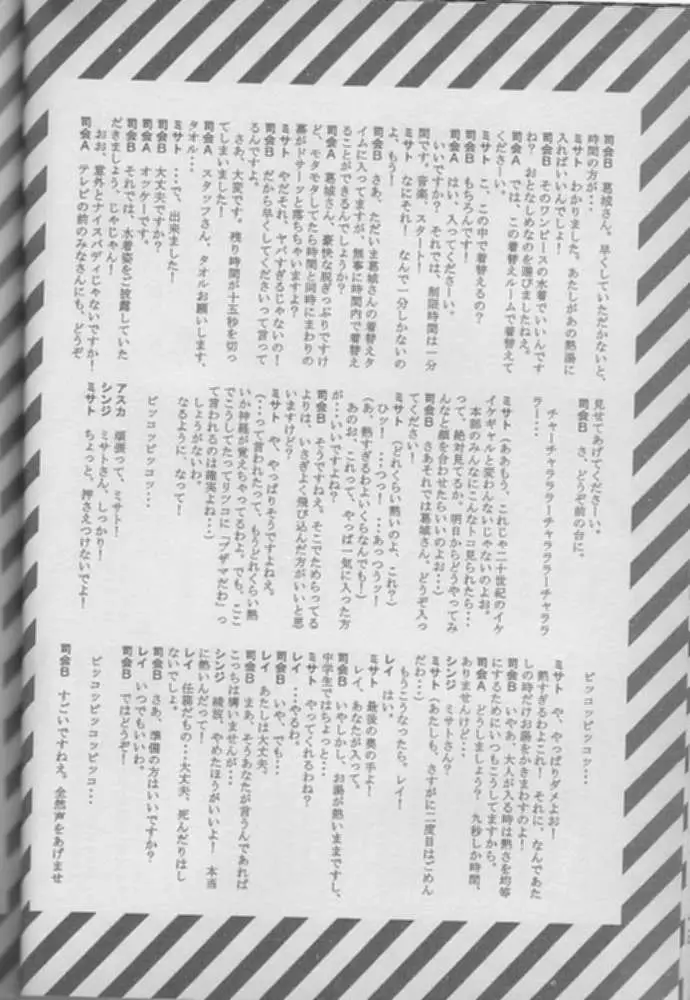 司会B 葛城さん、早くしていただかないと、
時間の方が…
ミサト わかりました。あたしがあの熱湯に
入ればいいんでしょ!
司会B そのワンピースの水着でいいんです
ね? おとなしめなのを選びましたねえ。
司会A では、この着替えルームで着替えて
くださーい。
ミサト こ、この中で着替えるの?
司会B もちろんです!
司会A はい、入ってくださーい。
いいですか? それでは、制限時間は一分
間です。音楽、スタート!
ミサト なにそれ! なんで一分しかないの
よ、もう!
司会B さあ、ただいま葛城さんの着替えタ
イムに入ってますが、無事に時間内で着替え
ることができるんでしょうか?
司会A 葛城さん、豪快な脱ぎっぷりですけ
ど、モタモタしてたら時間と同時にまわりの
幕がドサーッと落ちちゃいますよ?
ミサト やだそれ、ヤバすぎるじゃないの!
司会B だから早くしてくださいって言って
るんですよ。
さあ、大変です。残り時間が十五秒を切っ
てしまいました!
司会A スタッフさん、タオルお願いします、
タオル…
ミサト …で、出来ました!
司会B 大丈夫ですか?
司会A オッケーです。
司会B それでは、水着姿をご披露していた
だきましょう、じゃじゃん!
おお、意外とナイスバディじゃないですか!
司会A テレビの前のみなさんにも、どうぞ
見せてあげてくださーい。
司会B さ、どうぞ前の台に。
チャーチャラララーチャラララーチャララ
ラー…
ミサト (ああもう、これじゃ二十世紀のイケ
イケギャルと変わんないじゃないのよお。
本部のみんなにこんなトコ見られたら…
って、絶対見てるか。明日からどうやってみ
んなと顔を合わせたらいいのよお…)
司会B さあそれでは葛城さん、どうぞ入っ
てください!
ミサト (どれくらい熱いのよ、これ?)
ひッ! …つっ! …あっつうッ!
(あ、熱すぎるわよいくらなんでも!)
あのお、これって、やっぱ一気に入った方
が…いいですよね?
司会B そうですねえ。そこでためらってる
よりは、いさぎよく飛び込んだ方がいいと思
いますけど?
ミサト や、やっぱりそうですよねえ。
(…って言われたって、もうどれくらい熱
いか神経が覚えちゃってるわよ。でも、ここ
でこうしてたってリツコに「ブザマだわ」っ
て言われるのは確実よね…)
しょうがないわ。
なるように、なって!
ピッコッピッコッ…
アスカ 頑張って、ミサト!
シンジ ミサトさん、しっかり!
ミサト ちょっと、押さえつけないでよ!
ピッコッピッコッ…
ミサト や、やっぱりダメよお!
熱すぎるわよこれ! それに、なんであた
しの時だけお湯をかきまわすのよ!
司会B いやあ、大人が入る時は熱さを均等
にするためにいつもこうしてますから。
司会A どうしましょう? 九秒しか時間、
ありませんけど…
シンジ ミサトさん?
ミサト (あたしも、さすがに二度目はごめん
だわ…)
もうこうなったら、レイ!
レイ はい。
ミサト 最後の奥の手よ!
レイ、あなたが入って。
司会B いやしかし、お湯が熱いままですし、
中学生ではちょっと…
ミサト やってくれるわね?
レイ …やるわ。
司会B いや、でも…
レイ あたしは大丈夫。
司会B まあ、そうあなたが言うんであれば
こっちは構いませんが…
シンジ 綾波、やめたほうがいいよ! 本当
に熱いんだって!
レイ 任務だもの…大丈夫、死んだりはし
ないでしょ。
司会B さあ、準備の方はいいですか?
レイ いつでもいいわ。
司会B ではどうぞ!
ピッコッピッコッピッコ…
司会B すごいですねえ。全然声をあげませ